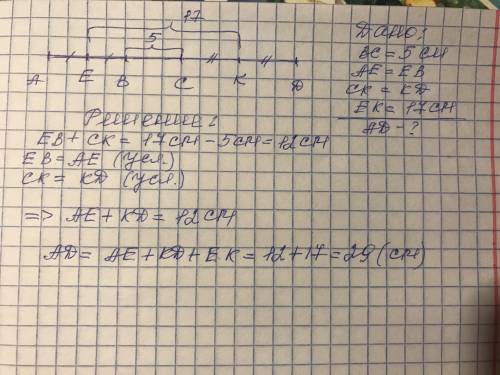 17
5
A E B C K D
Дано:
BC = 5 см
AE = EB
CK = KD
EK = 17 см
AD - ?
Решение:
EB + CK = 17 см - 5 см = 12 см
EB = AE (усл.)
CK = KD (усл.)
=> AE + KD = 12 см
AD = AE + KD + EK = 12 + 17 = 29 (см)